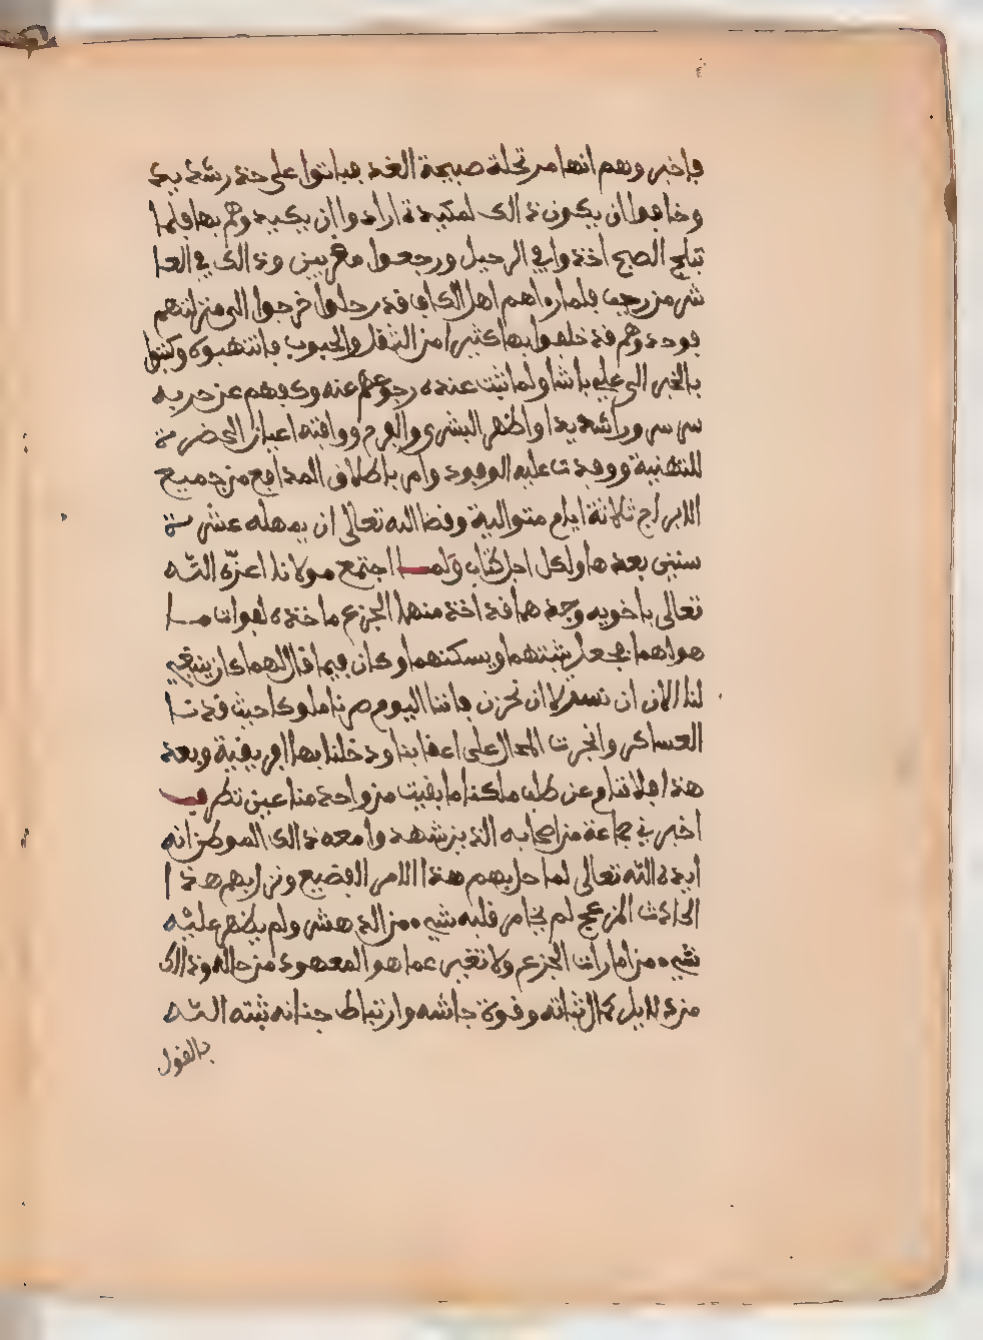 فاخبروهم انها مرتحلة صبيحة الغد فباتوا على حذر شديد
وخافوا ان يكون ذالك لمكيدة ارادوا ان يكيدوهم بها فلما
تبلج الصبح اخذوا في الرحيل ورجعوا مغربين وذالك في العا
شر من رجب فلما رءاهم اهل الكاف قد رحلوا خرجوا الى منزلتهم
فوجدوهم قد خلفوا بها كثيرا من الثقل والحبوب فانتهبوه وكتبوا
بالخبر الى علي باشا ولما ثبت عنده رجوعهم عنه وكفهم عن حربه
سر سرورا شديدا واظهر البشرى والفرح ووافته اعيان الحضرة
للتهنية ووفدت عليه الوفود وامر باطلاق المدافع من جميع
الابراج ثلاثة ايام متوالية وقضا الله تعالى ان يمهله عشرة
سنين بعدها ولكل اجل كتاب ولما اجتمع مولانا اعزه الله
تعالى باخويه وجدهما قد اخذ منهما الجزع ماخذه لفوات ما
هواهما فجعل يثبتهما ويسكنهما وكان فيما قال لهما كان ينبغي
لنا الان ان نسر لا ان نحزن فاننا اليوم صرنا ملوكا حيث قدنا
العساكر وانجرت المحال على اعقابنا ودخلنا بها افريقية وبعد
هذا فلا ننام عن طلب ملكنا ما بقيت من واحد منا عين تطرف
اخبرني جماعة من اصحابه الذين شهدوا معه ذالك الموطن انه
ايده الله تعالى لما حل بهم هذا الامر الفضيع ونزل بهم هذا
الحادث المزعج لم يخامر قلبه شيء من الدهش ولم يظهر عليه
شيء من امارات الجزع ولا تغير عما هو المعهود من حاله وذالك
من دلايل كمال ثباته وقوة جاشه وارتباط جنانه ثبته الله
بالقول